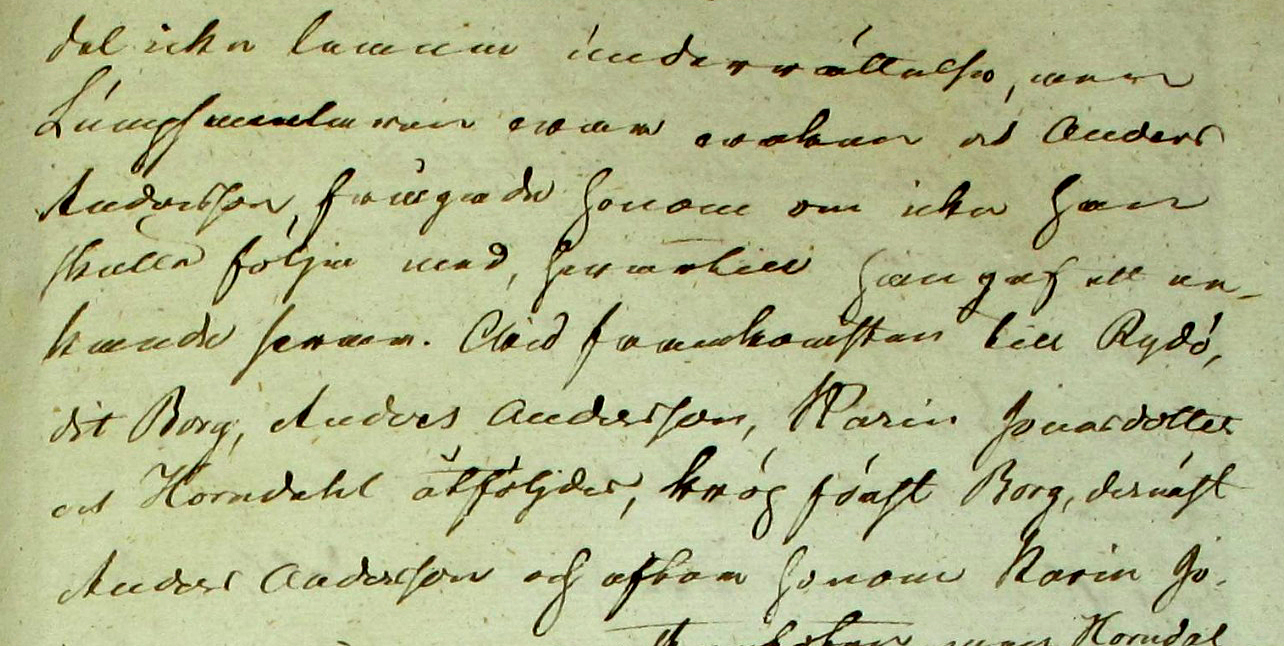 del icke lemnar underrättelse, men
Länsmannen war waken och Anders
Andersson, frågade honom om icke han
skulle följa med, hwartill han gaf ett ne-
kande swar. Wid framkomsten till Rydö,
dit Borg, Anders Andersson, Karin Jonasdotter
och Horndahl åtföljdes, krög först Borg, dernäst
Anders Andersson och efter honom Karin Jo-
Horndal